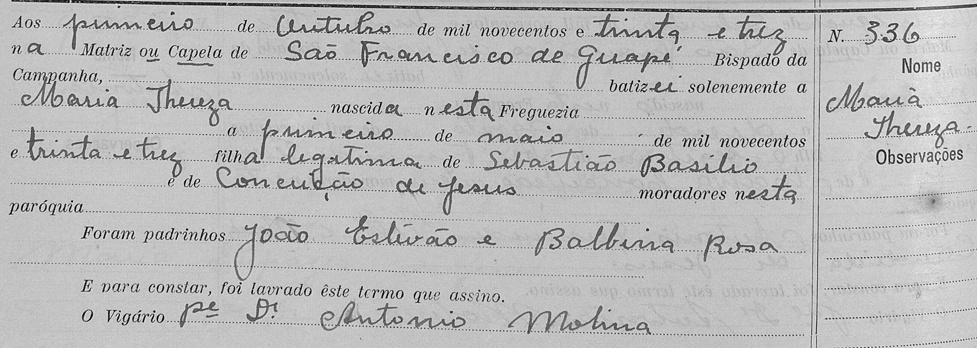 Aos primeiro de Outubro de mil novecentos e trinta e trez
na Matriz ou Capela de São Francisco de Guapé, Bispado da
Campanha, batizei solenemente a
Maria Thereza nascida nesta Freguezia
a primeiro de maio de mil novecentos
e trinta e trez filha legitima de Sebastião Basílio
e de Conceição de Jesus moradores nesta
paróquia
Foram padrinhos João Estevão e Balbina Rosa
E para constar, foi lavrado êste termo que assino.
O Vigário Pe Dr. Antonio Molina
N. 336
Nome
Maria
Thereza
Observações